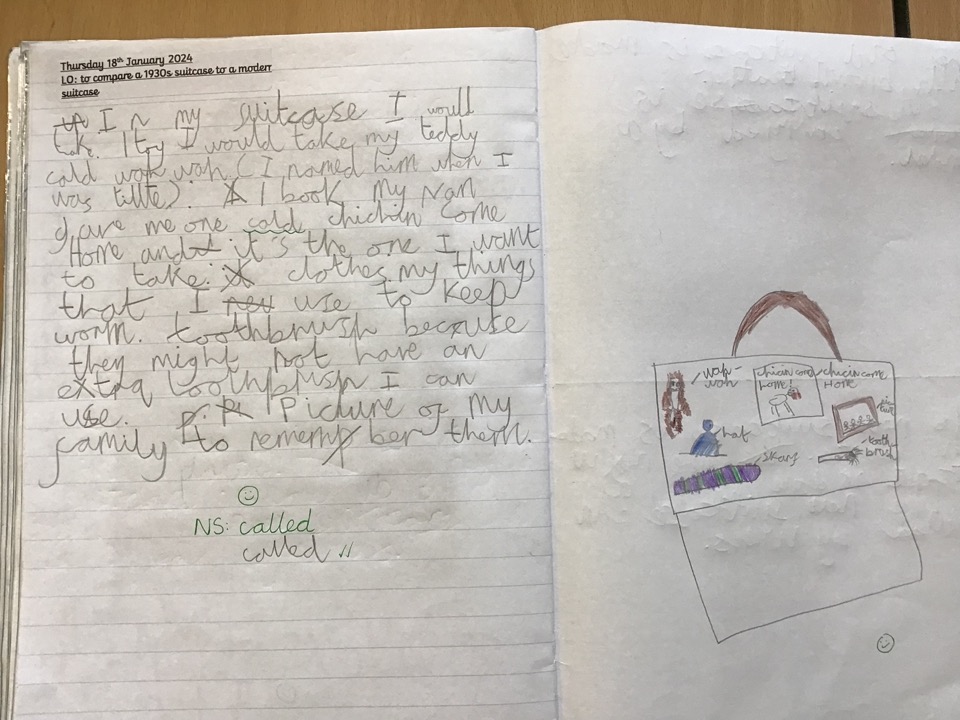 Thursday 18th January 2024
LO: to compare a 1930s suitcase to a modern
suitcase
In my suitcase I would
take. 1 toy I would take my teddy
cald wah wah (I named him when I
was tilte). 1 book my Nan
gave me one cald chichin come
Home and it's the one I want
to take. clothes my things
that I use to keep
worm. toothbrush because
they might not have an
extra toothbrush I can
use. 1 picture of my
family to remember them.
NS: called
called
wah-
wah
chicin come
home!
chicin come
Home
hat
skarf
tooth
brush